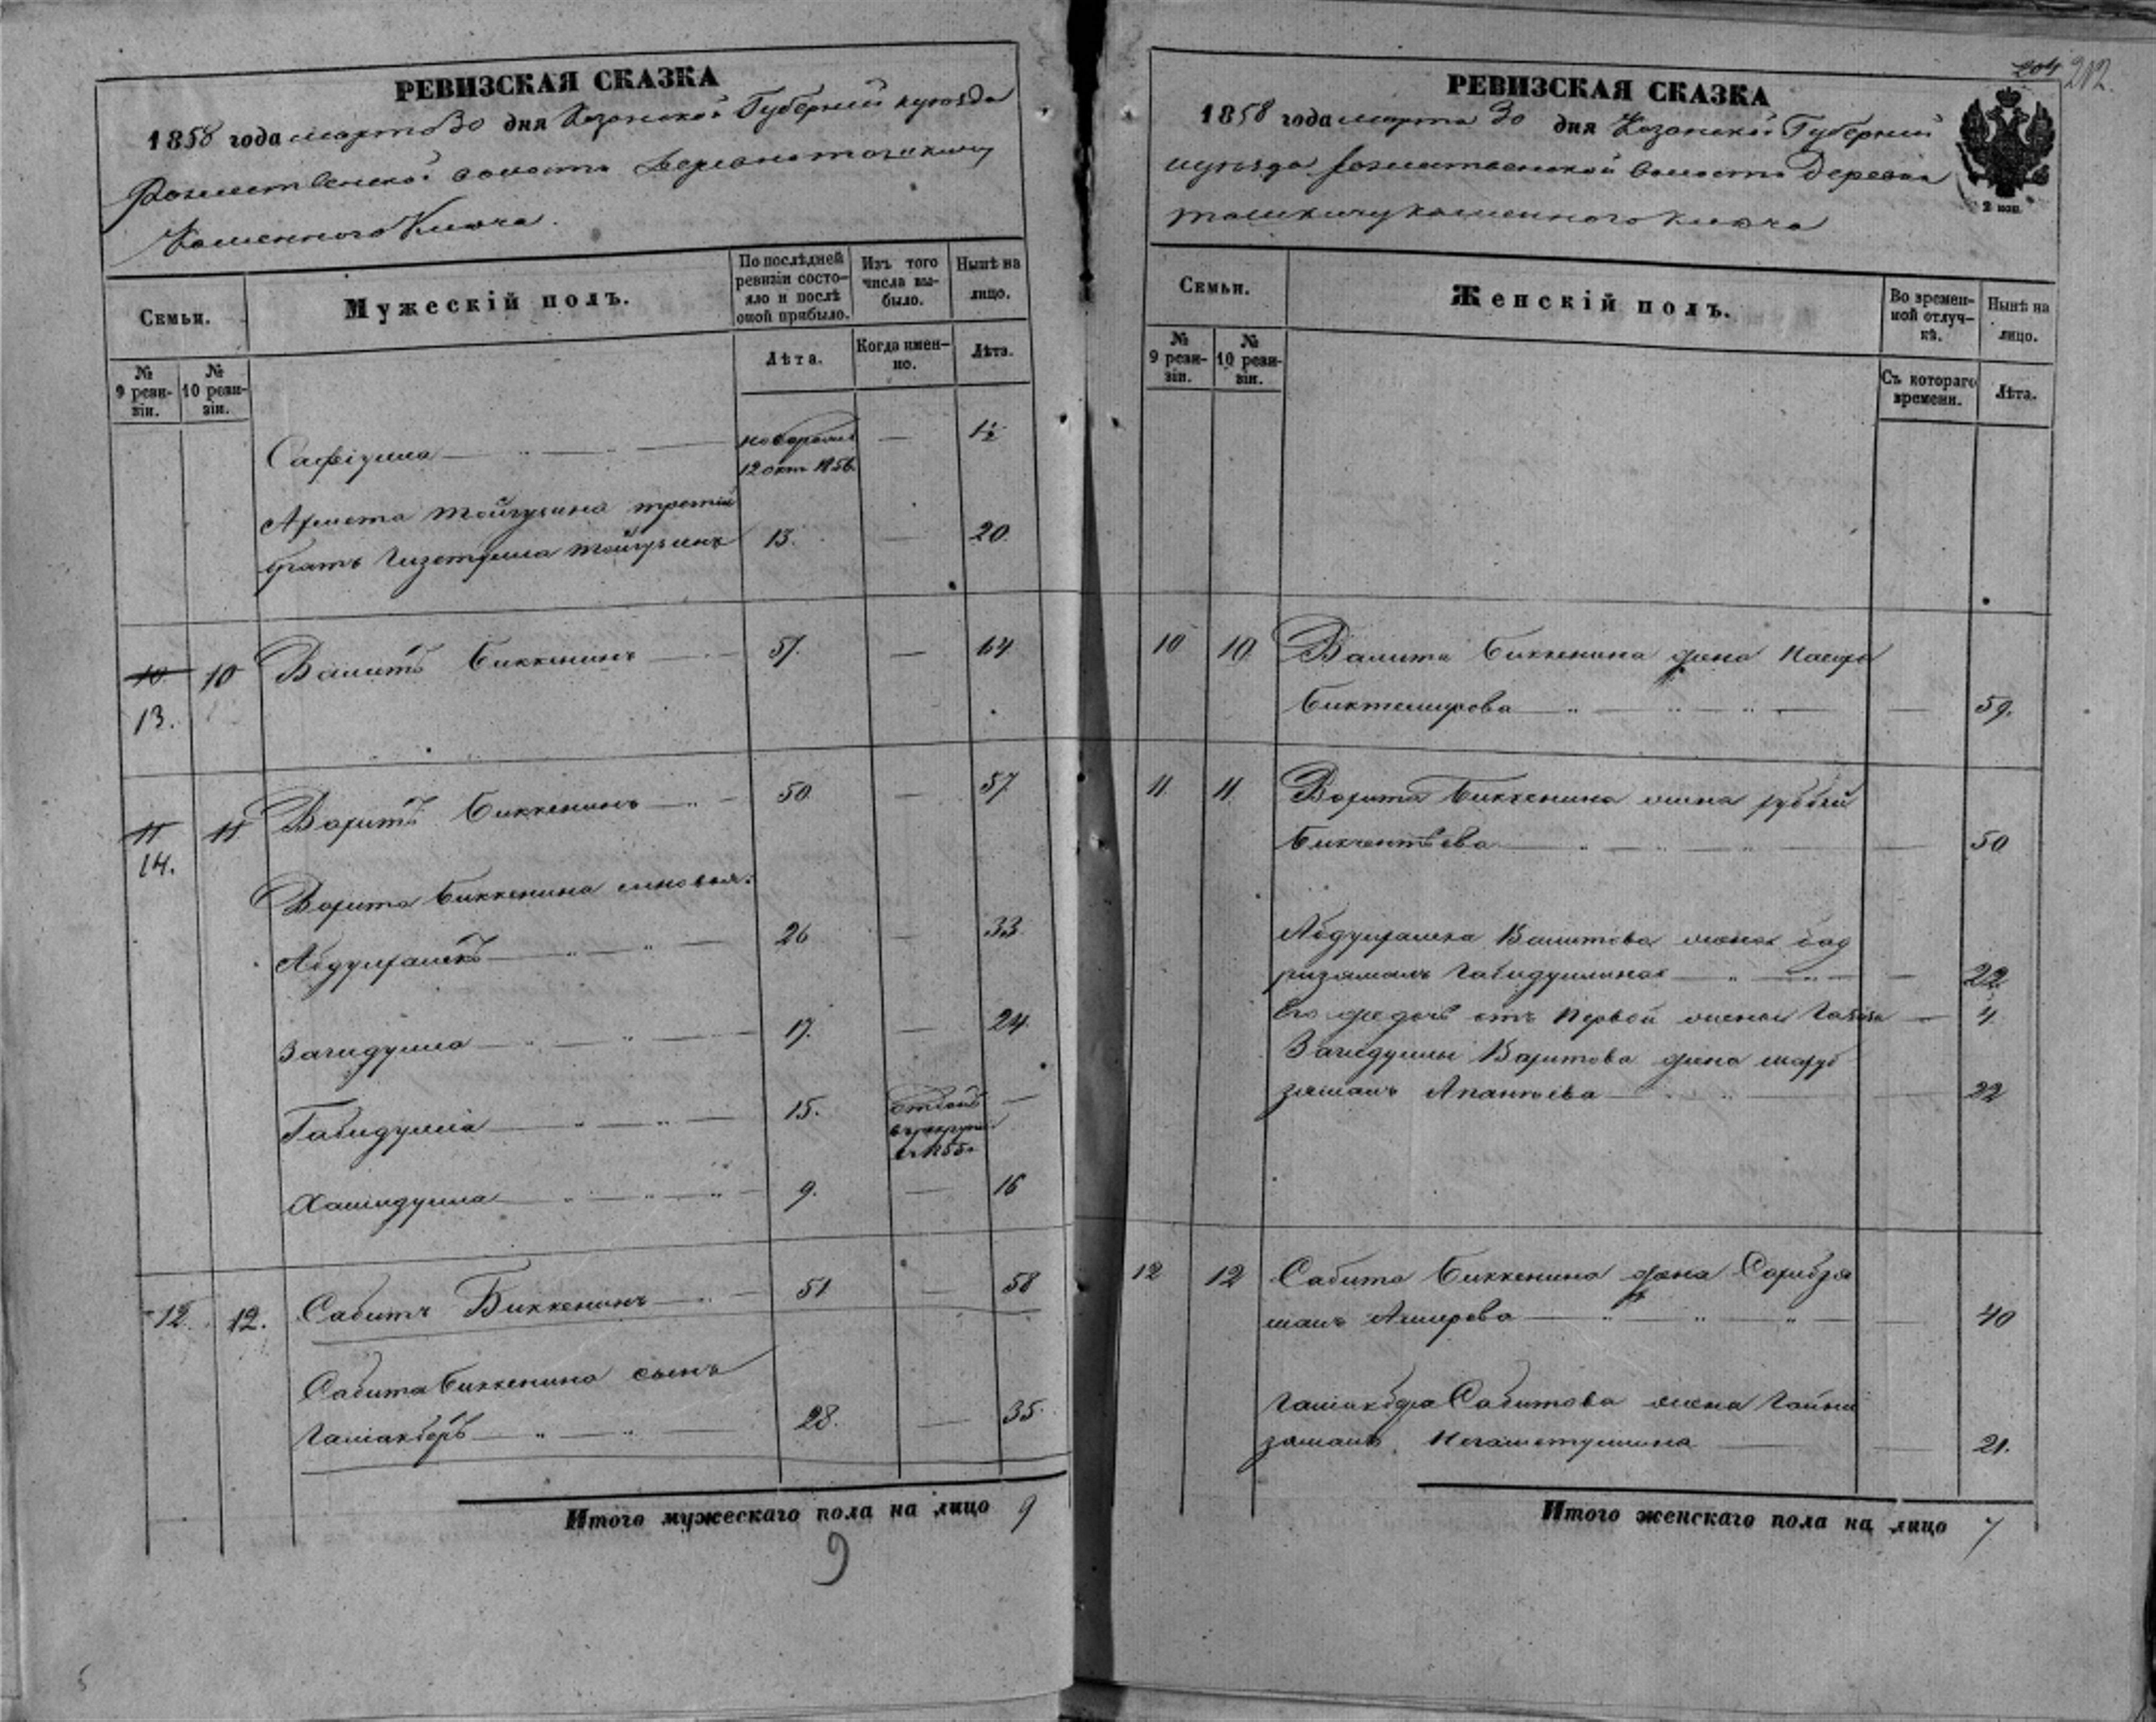 РЕВИЗСКАЯ СКАЗКА
1858 года марта 30 дня Казанской Губернии и уезда
Рожественской волости Деревни ташкичу
Каменного Ключа.
Семьи.
Мужескій полъ.
По послѣдней ревизіи состояло и послѣ оной прибыло.
Изъ того числа выбыло.
Нынѣ на лицо.
№ 9 ревизіи.
№ 10 ревизіи.
Лѣта.
Когда именно.
Лѣта.
Сафіулла новорожд 12 окт 1856. — 1½
Ахмета третій
братъ 13. — 20.
10 13. 10 Валитъ Биккенинъ 57. — 64
11 14. 11 Варитъ Биккенинъ 50 — 57
Варита Биккенина сыновья:
Абдулхаликъ 26 — 33.
Загидулла 17. — 24.
Габидулла 15. отданъ въ рекруты в 1855. —
Хамидулла 9. — 16
12. 12. Сабитъ Биккенинъ 51 — 58
Сабита Биккенина сынъ
Галіакберъ 28. — 35.
Итого мужескаго пола на лицо 9
9
204 212.
РЕВИЗСКАЯ СКАЗКА
1858 года марта 30 дня Казанской Губернии
и уезда Рожественской волости Деревни
ташкичу каменного ключа
2 коп.
Семьи.
Женскій полъ.
Во временной отлучкѣ.
Нынѣ на лицо.
№ 9 ревизіи.
№ 10 ревизіи.
Съ котораго времени.
Лѣта.
10 10 Валита Биккенина жена
Биктемирова — 59.
11 11 Варита Биккенина жена
Бикчентѣева — 50
Абдулхалика Валитова жена бад
ризямалъ Габидуллина — 22
Его же дочь отъ Первой жены — 4.
Загидуллы Варитова жена махуб
зямалъ Апанаева — 22
12 12 Сабита Биккенина жена
Амирова — 40
Галіакбера Сабитова жена Гайни
замалъ Негаметуллина — 21.
Итого женскаго пола на лицо 7